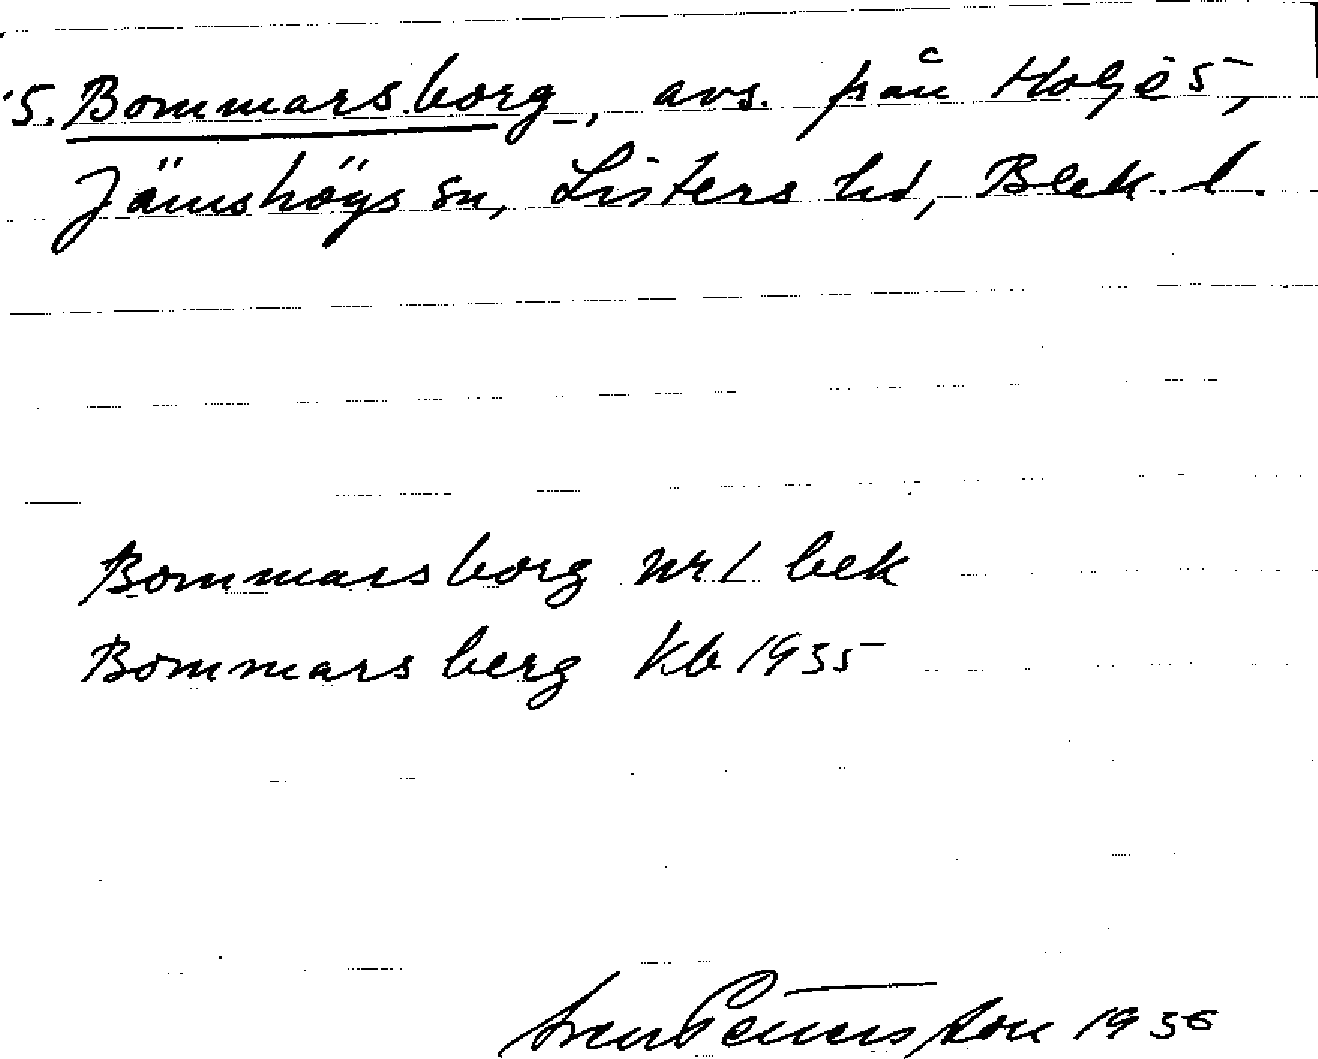 5. Bommarsborg, avs. från Holje 5,
Jämshögs sn, Listers hd, Blek. l.
Bommarsborg nr 1 bek
Bommarsberg Kb 1935
1936